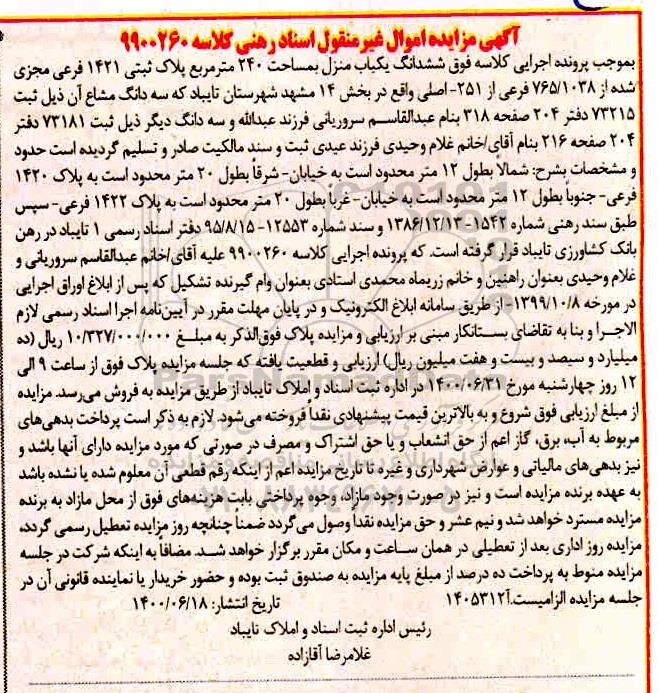 آگهی مزایده اموال غیر منقول اسناد رهنی کلاسه ۹۹۰۰۲۶۰
بموجب پرونده اجرایی کلاسه فوق ششدانگ یکباب منزل بمساحت ۲۴۰ مترمربع پلاک ثبتی ۱۴۲۱ فرعی مجزی
شده از ۷۶۵/۱۰۳۸ فرعی از ۲۵۱- اصلی واقع در بخش ۱۴ مشهد شهرستان تایباد که سه دانگ مشاع آن ذیل ثبت
۷۳۲۱۵ دفتر ۲۰۴ صفحه ۳۱۸ بنام عبدالقاسم سروریانی فرزند عبدالله و سه دانگ دیگر ذیل ثبت ۷۳۱۸۱ دفتر
۲۰۴ صفحه ۲۱۶ بنام آقای/خانم غلام وحیدی فرزند عیدی ثبت و سند مالکیت صادر و تسلیم گردیده است حدود
و مشخصات بشرح: شمالاً بطول ۱۲ متر محدود است به خیابان- شرقاً بطول ۲۰ متر محدود است به پلاک ۱۴۲۰
فرعی- جنوباً بطول ۱۲ متر محدود است به خیابان- غرباً بطول ۲۰ متر محدود است به پلاک ۱۴۲۲ فرعی- سپس
طبق سند رهنی شماره ۱۵۴۲- ۱۳۸۶/۱۲/۱۳ و سند شماره ۱۲۵۵۳- ۹۵/۸/۱۵ دفتر اسناد رسمی ۱ تایباد در رهن
بانک کشاورزی تایباد قرار گرفته است. که پرونده اجرایی کلاسه ۹۹۰۰۲۶۰ علیه آقای/خانم عبدالقاسم سروریانی و
غلام وحیدی بعنوان راهنین و خانم زریماه محمدی استادی بعنوان وام گیرنده تشکیل که پس از ابلاغ اوراق اجرایی
در مورخه ۱۳۹۹/۱۰/۸- از طریق سامانه ابلاغ الکترونیک و در پایان مهلت مقرر در آیین‌نامه اجرا اسناد رسمی لازم
الاجرا و بنا به تقاضای بستانکار مبنی بر ارزیابی و مزایده پلاک فوق‌الذکر به مبلغ ۱۰/۳۲۷/۰۰۰/۰۰۰ ریال (ده
میلیارد و سیصد و بیست و هفت میلیون ریال) ارزیابی و قطعیت یافته که جلسه مزایده پلاک فوق از ساعت ۹ الی
۱۲ روز چهارشنبه مورخ ۱۴۰۰/۰۶/۳۱ در اداره ثبت اسناد و املاک تایباد از طریق مزایده به فروش می‌رسد. مزایده
از مبلغ ارزیابی فوق شروع و به بالاترین قیمت پیشنهادی نقداً فروخته می‌شود. لازم به ذکر است پرداخت بدهی‌های
مربوط به آب، برق، گاز اعم از حق انشعاب و یا حق اشتراک و مصرف در صورتی که مورد مزایده دارای آنها باشد و
نیز بدهی‌های مالیاتی و عوارض شهرداری و غیره تا تاریخ مزایده اعم از اینکه رقم قطعی آن معلوم شده یا نشده باشد
به عهده برنده مزایده است و نیز در صورت وجود مازاد، وجوه پرداختی بابت هزینه‌های فوق از محل مازاد به برنده
مزایده مسترد خواهد شد و نیم عشر و حق مزایده نقداً وصول می‌گردد ضمناً چنانچه روز مزایده تعطیل رسمی گردد،
مزایده روز اداری بعد از تعطیلی در همان ساعت و مکان مقرر برگزار خواهد شد. مضافاً به اینکه شرکت در جلسه
مزایده منوط به پرداخت ده درصد از مبلغ پایه مزایده به صندوق ثبت بوده و حضور خریدار یا نماینده قانونی آن در
جلسه مزایده الزامیست.آ۱۴۰۵۳۱۲ تاریخ انتشار: ۱۴۰۰/۰۶/۱۸
رئیس اداره ثبت اسناد و املاک تایباد
غلامرضا آقازاده